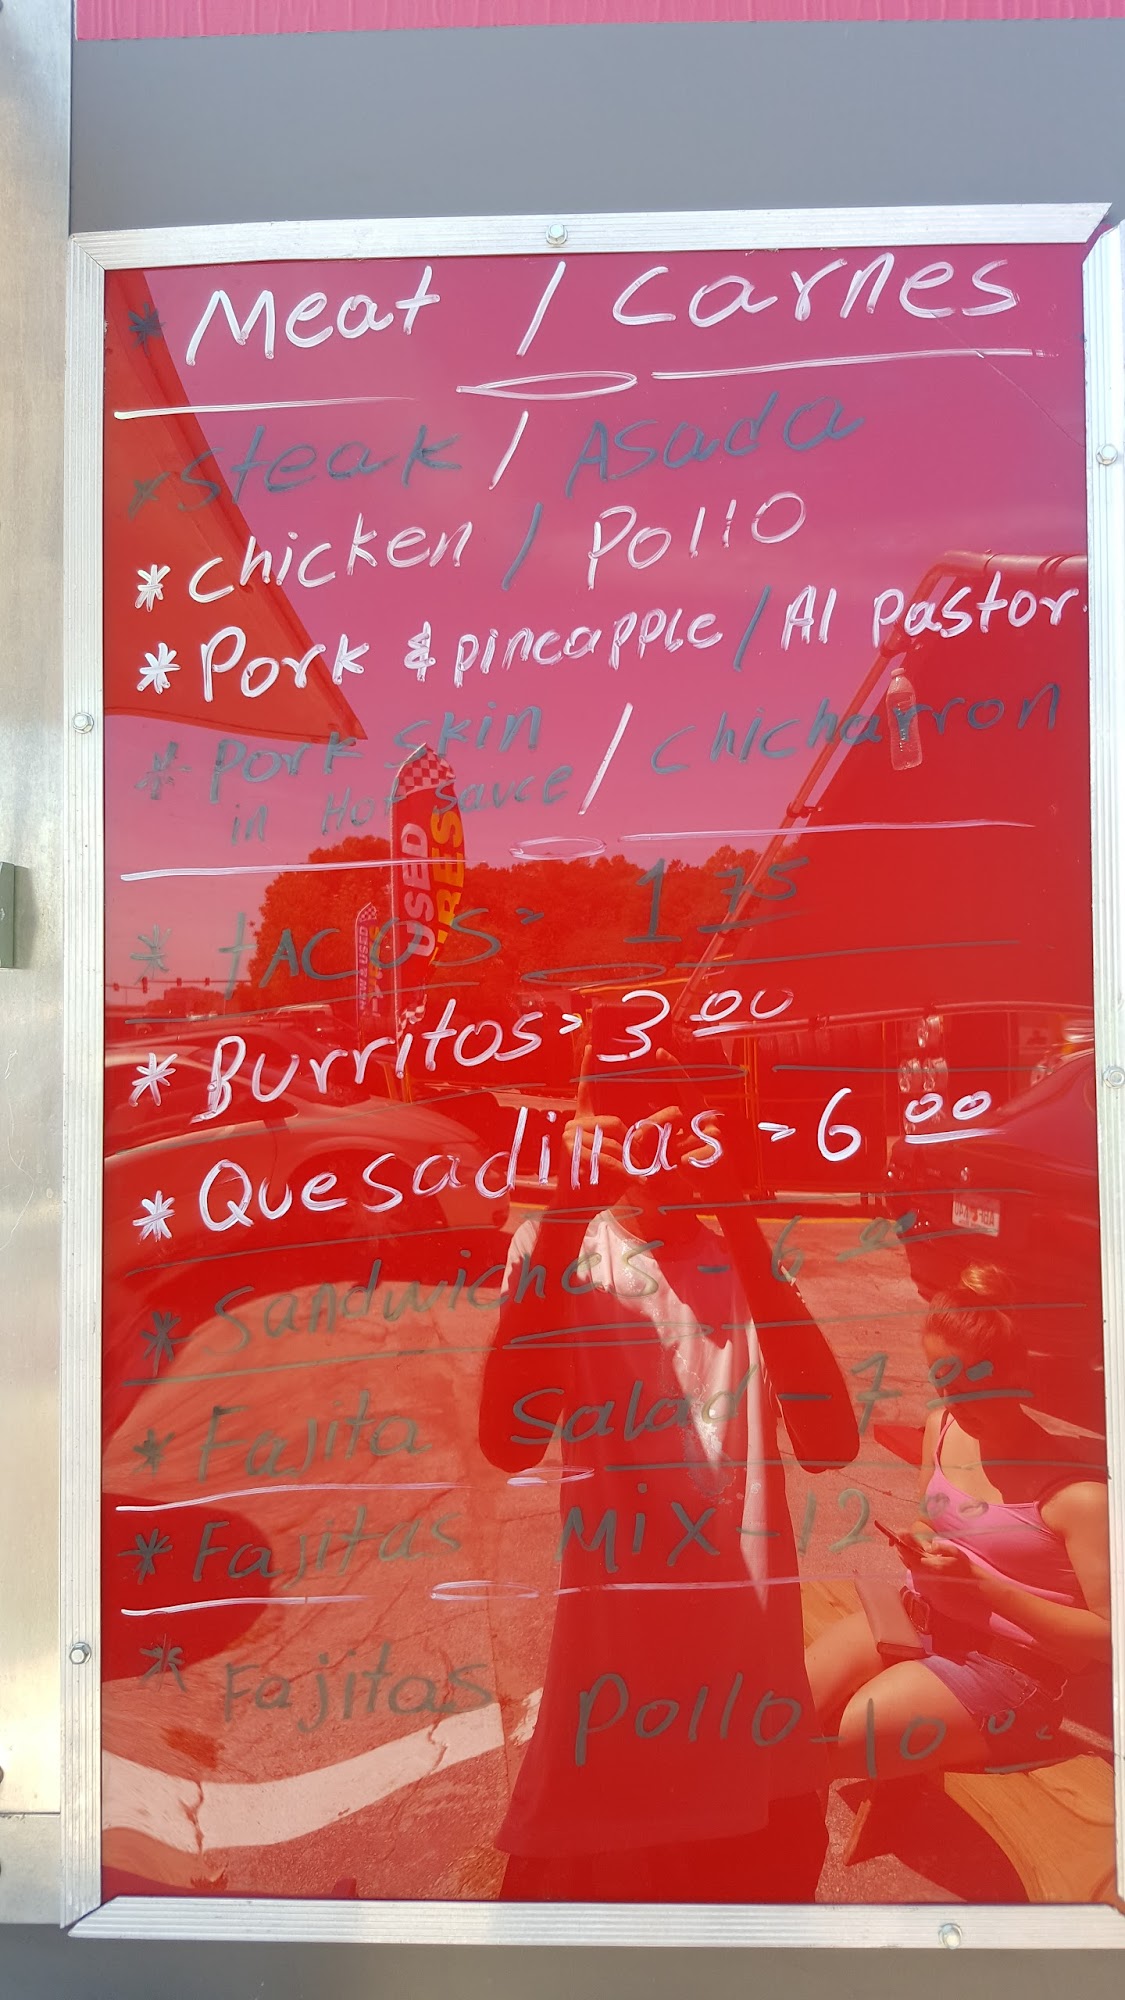 * Meat / Carnes
* Steak / Asada
* Chicken / Pollo
* Pork & pineapple / Al pastor.
* Pork skin / Chicharron
in Hot sauce
* tACOS = 1 75
* Burritos = 3 00
* Quesadillas = 6 00
* Sandwiches - 6 00
* Fajita Salad - 7 00
* Fajitas Mix - 12 00
* Fajitas Pollo - 10 00
USED